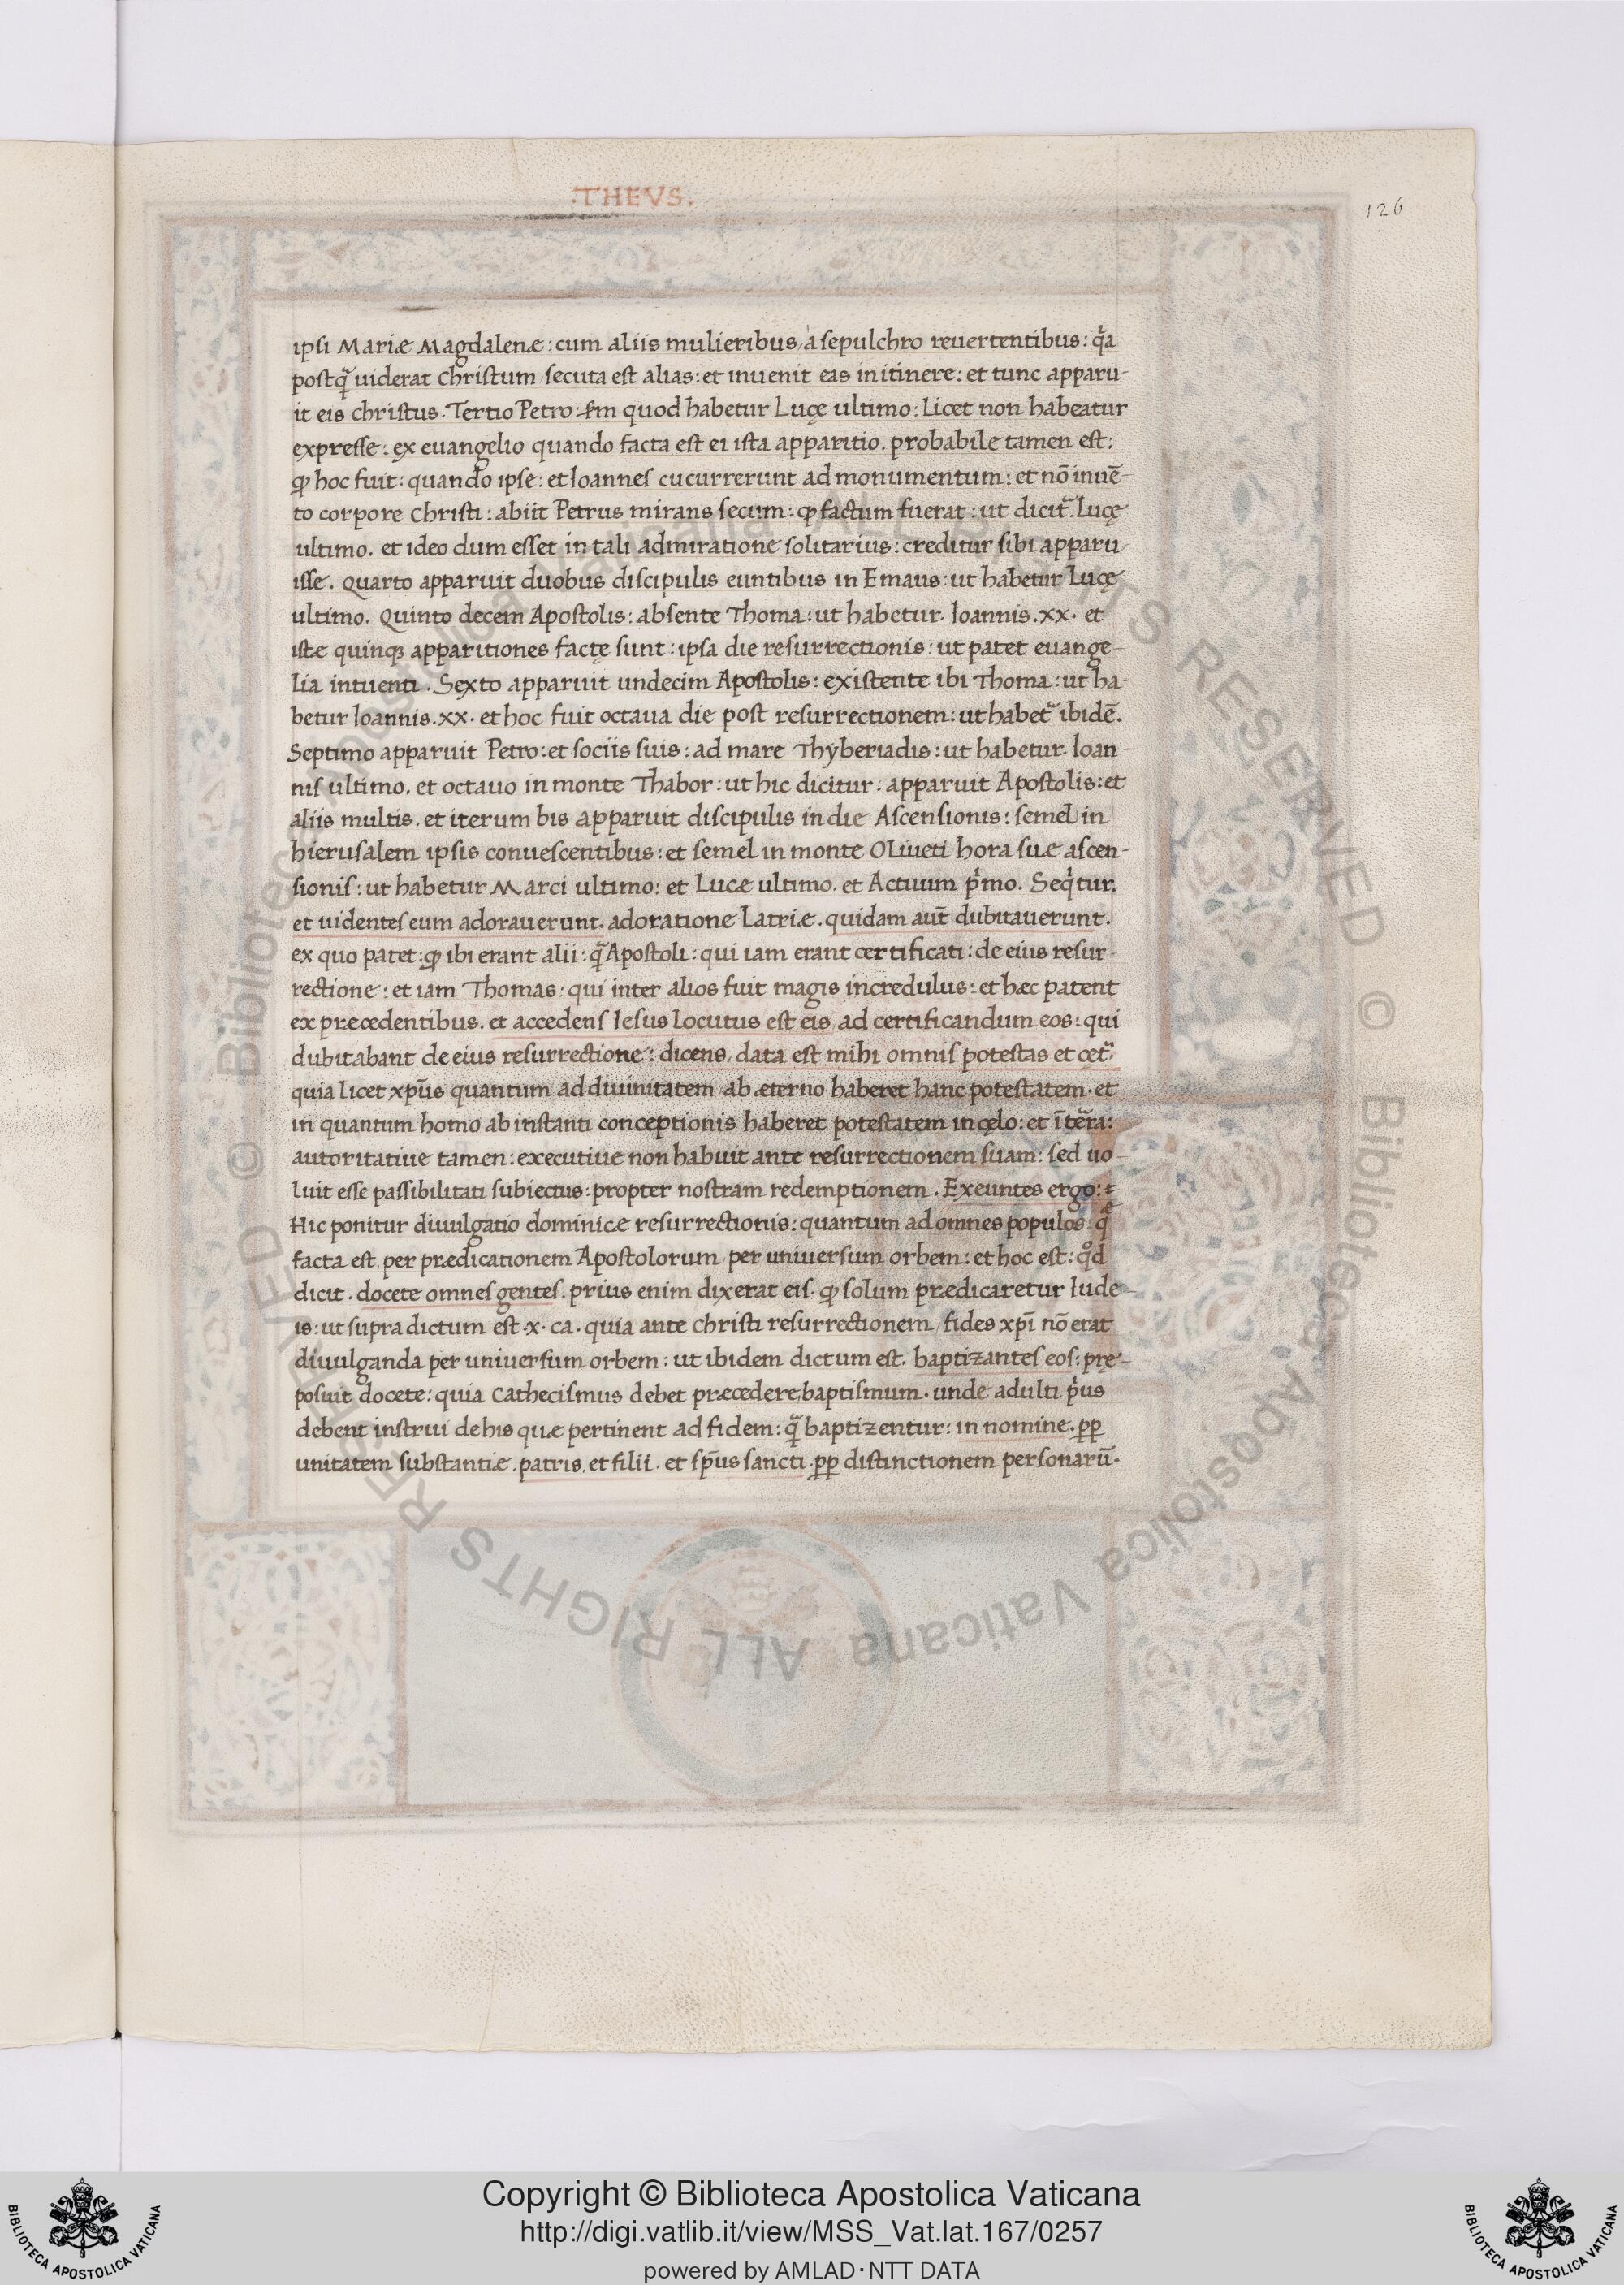 ·THEVS.
126
ipsi Mariæ Magdalenæ: cum aliis mulieribus, a sepulchro reuertentibus: qͥa
postqᷓ uiderat Christum secuta est alias: et inuenit eas in itinere: et tunc apparu-
it eis christus. Tertio Petro: s̄m quod habetur Lucę ultimo: Licet non habeatur
expresse: ex euangelio quando facta est ei ista apparitio. probabile tamen est:
ꝙ hoc fuit: quando ipse: et Ioannes cucurrerunt ad monumentum: et nō inuē-
to corpore Christi: abiit Petrus mirans secum: ꝙ factum fuerat: ut dicit᷑. Lucę
ultimo. et ideo dum esset in tali admiratione solitarius: creditur sibi apparu
isse. Quarto apparuit duobus discipulis euntibus in Emaus: ut habetur Lucę
ultimo. Quinto decem Apostolis: absente Thoma: ut habetur. Ioannis.xx. et
istæ quinqꝫ apparitiones factę sunt: ipsa die resurrectionis: ut patet euange-
lia intuenti. Sexto apparuit undecim Apostolis: existente ibi Thoma: ut ha-
betur Ioannis.xx. et hoc fuit octaua die post resurrectionem: ut habet᷑ ibidē.
Septimo apparuit Petro: et sociis suis: ad mare Thyberiadis: ut habetur. Ioan-
nis ultimo. et octauo in monte Thabor: ut hic dicitur: apparuit Apostolis: et
aliis multis. et iterum bis apparuit discipulis in die Ascensionis: semel in
hierusalem ipsis conuescentibus: et semel in monte Oliueti hora suæ ascen-
sionis: ut habetur Marci ultimo: et Lucæ ultimo. et Actuum pͥmo. Seqͥtur.
et uidentes eum adorauerunt. adoratione Latriæ. quidam aut̄ dubitauerunt.
ex quo patet: ꝙ ibi erant alii: qᷓ Apostoli: qui iam erant certificati: de eius resur-
rectione: et iam Thomas: qui inter alios fuit magis incredulus: et hæc patent
ex præcedentibus. et accedens Iesus locutus est eis, ad certificandum eos: qui
dubitabant de eius resurrectione: dicens, data est mihi omnis potestas et cęt᷑:
quia licet xp̄us quantum ad diuinitatem ab æterno haberet hanc potestatem. et
in quantum homo ab instanti conceptionis haberet potestatem in cęlo: et ī ter̄a:
autoritatiue tamen: executiue non habuit ante resurrectionem suam: sed uo-
luit esse passibilitati subiectus: propter nostram redemptionem. Exeuntes ergo: ⁊
Hic ponitur diuulgatio dominicæ resurrectionis: quantum ad omnes populos: q̄
facta est, per prædicationem Apostolorum per uniuersum orbem: et hoc est: qͦd
dicit. docete omnes gentes. prius enim dixerat eis. ꝙ solum prædicaretur Iude-
is: ut supra dictum est .x. ca. quia ante christi resurrectionem, fides xp̄i nō erat
diuulganda per uniuersum orbem: ut ibidem dictum est. baptizantes eos: prę-
posuit docete: quia Cathecismus debet præcedere baptismum. unde adulti pͥus
debent instrui de his quæ pertinent ad fidem: qᷓ baptizentur: in nomine. ꝓꝑ
unitatem substantiæ. patris. et filii. et sp̄us sancti. ꝓꝑ distinctionem personarū.
© Biblioteca Apostolica Vaticana ALL RIGHTS RESERVED © Biblioteca Apostolica Vaticana ALL RIGHTS RESERVED
Copyright © Biblioteca Apostolica Vaticana
http://digi.vatlib.it/view/MSS_Vat.lat.167/0257
powered by AMLAD·NTT DATA
BIBLIOTECA APOSTOLICA VATICANA
BIBLIOTECA APOSTOLICA VATICANA